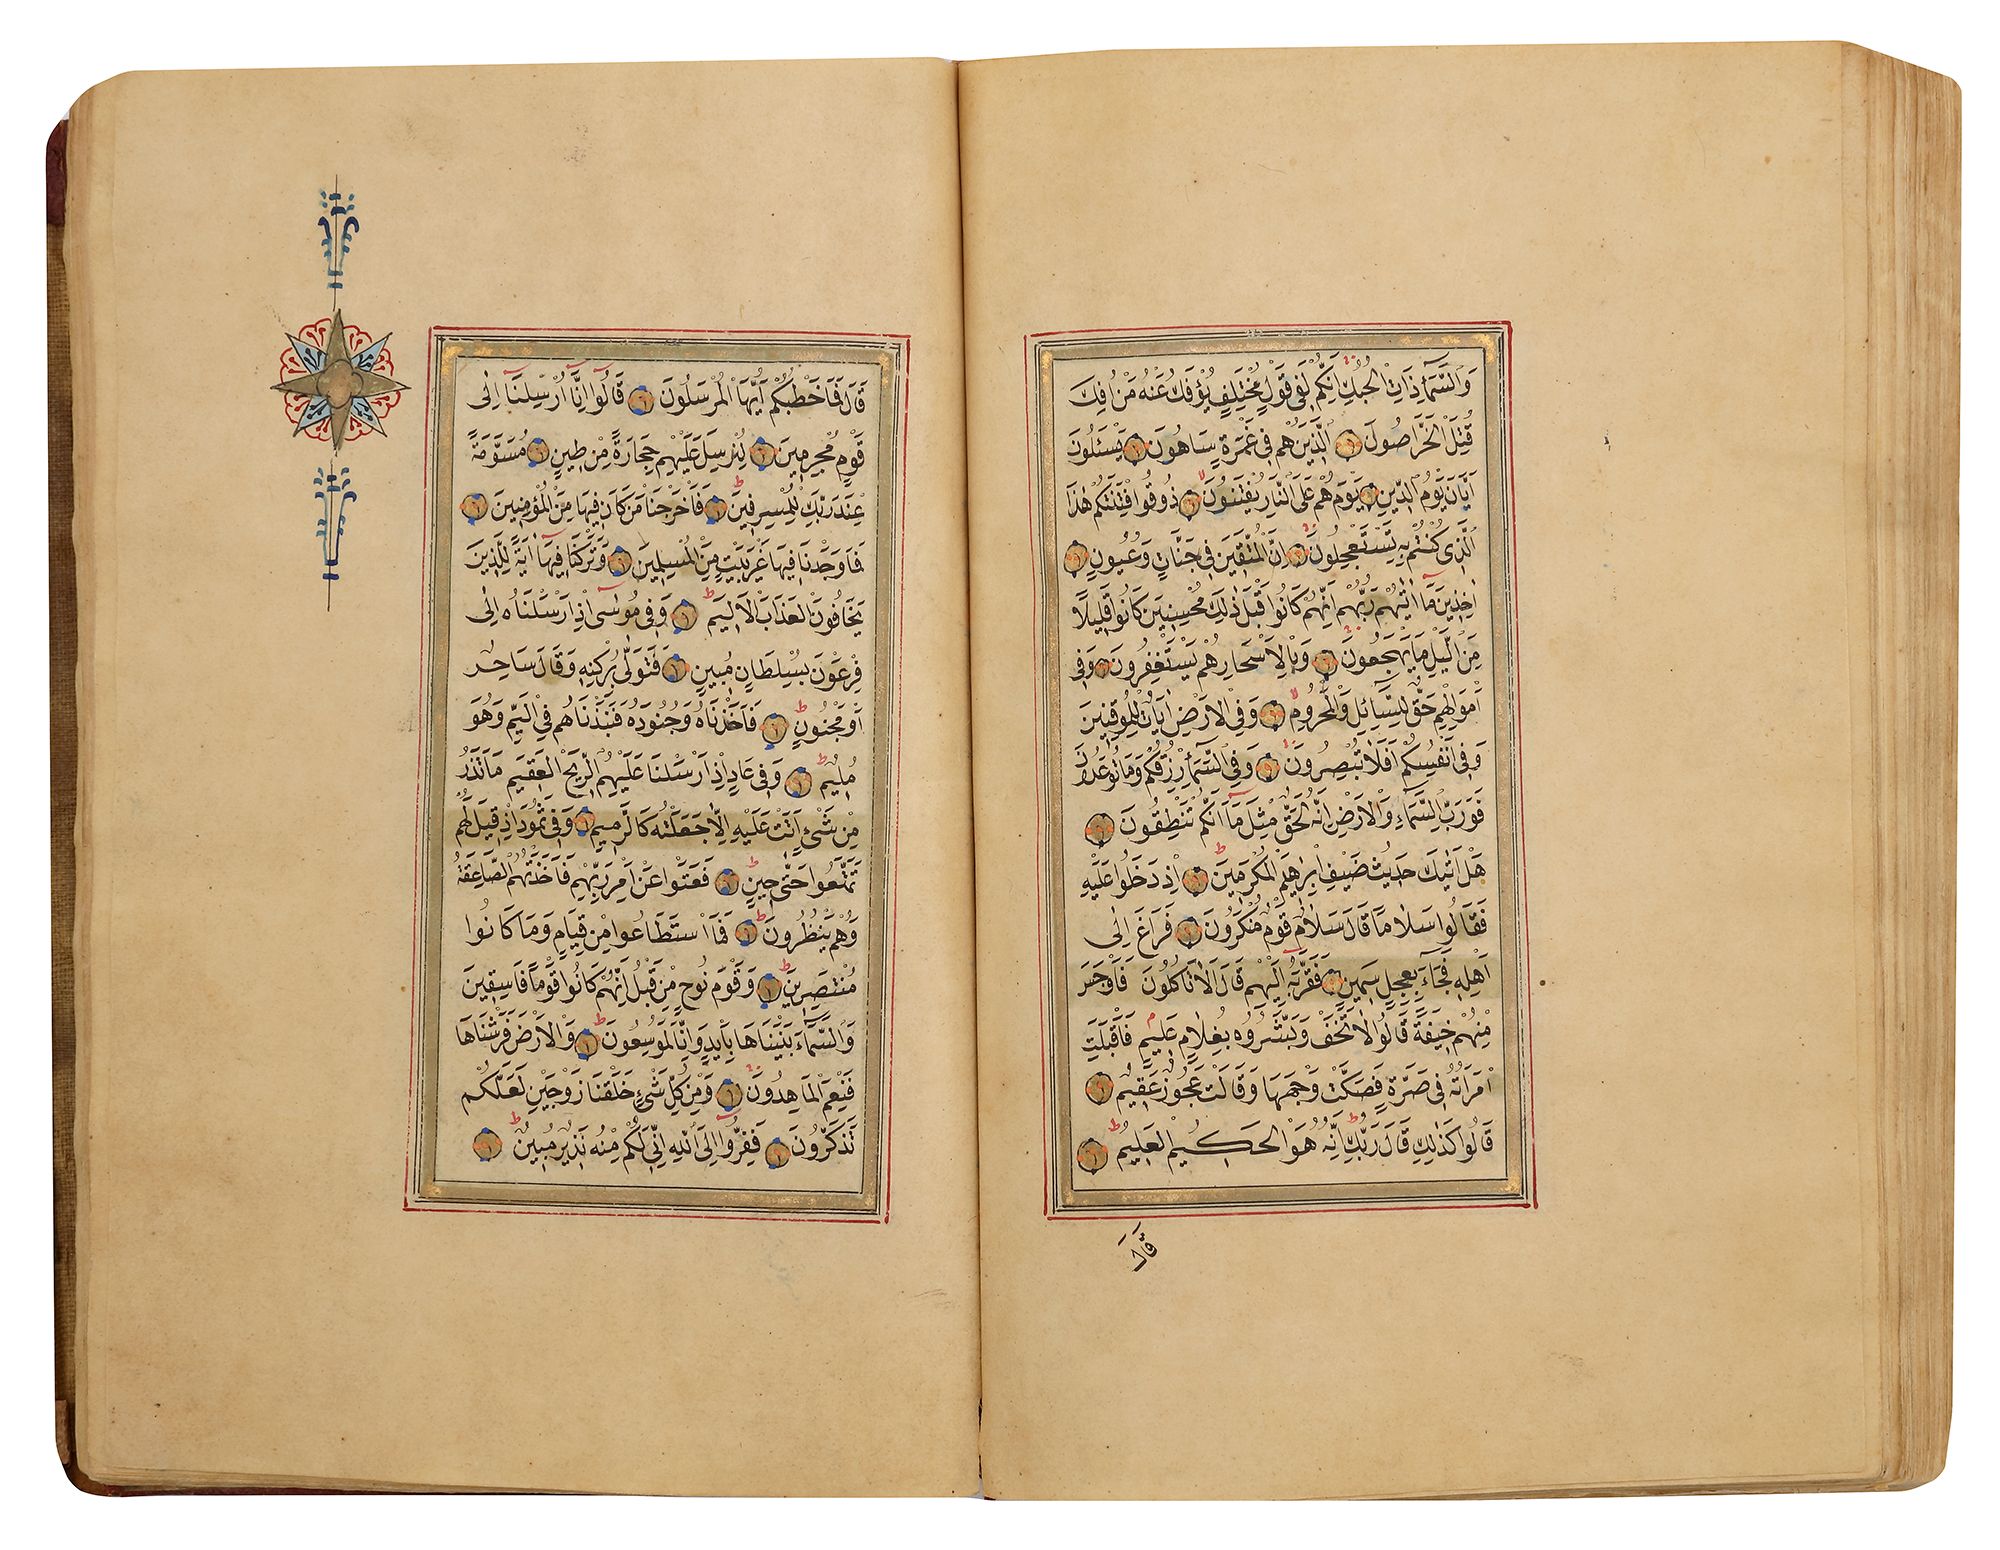 وَالسَّمَاءِ ذَاتِ الْحُبُكِ اِنَّكُمْ لَفِى قَوْلٍ مُخْتَلِفٍ يُؤْفَكُ عَنْهُ مَنْ اُفِكَ
قُتِلَ الْخَرَّاصُونَ اَلَّذِينَ هُمْ فِى غَمْرَةٍ سَاهُونَ يَسْئَلُونَ
اَيَّانَ يَوْمُ الدِّينِ يَوْمَ هُمْ عَلَى النَّارِ يُفْتَنُونَ ذُوقُوا فِتْنَتَكُمْ هٰذَا
الَّذِى كُنْتُمْ بِهِ تَسْتَعْجِلُونَ اِنَّ الْمُتَّقِينَ فِى جَنَّاتٍ وَعُيُونٍ
اٰخِذِينَ مَا اٰتٰيهُمْ رَبُّهُمْ اِنَّهُمْ كَانُوا قَبْلَ ذٰلِكَ مُحْسِنِينَ كَانُوا قَلِيلًا
مِنَ الَّيْلِ مَا يَهْجَعُونَ وَبِالْاَسْحَارِ هُمْ يَسْتَغْفِرُونَ وَفِى
اَمْوَالِهِمْ حَقٌّ لِلسَّائِلِ وَالْمَحْرُومِ وَفِى الْاَرْضِ اٰيَاتٌ لِلْمُوقِنِينَ
وَفِى اَنْفُسِكُمْ اَفَلَا تُبْصِرُونَ وَفِى السَّمَاءِ رِزْقُكُمْ وَمَا تُوعَدُونَ
فَوَرَبِّ السَّمَاءِ وَالْاَرْضِ اِنَّهُ لَحَقٌّ مِثْلَ مَا اَنَّكُمْ تَنْطِقُونَ
هَلْ اَتٰيكَ حَدِيثُ ضَيْفِ اِبْرٰهِيمَ الْمُكْرَمِينَ اِذْ دَخَلُوا عَلَيْهِ
فَقَالُوا سَلَامًا قَالَ سَلَامٌ قَوْمٌ مُنْكَرُونَ فَرَاغَ اِلٰى
اَهْلِهِ فَجَاءَ بِعِجْلٍ سَمِينٍ فَقَرَّبَهُ اِلَيْهِمْ قَالَ اَلَا تَاْكُلُونَ فَاَوْجَسَ
مِنْهُمْ خِيفَةً قَالُوا لَا تَخَفْ وَبَشَّرُوهُ بِغُلَامٍ عَلِيمٍ فَاَقْبَلَتِ
امْرَاَتُهُ فِى صَرَّةٍ فَصَكَّتْ وَجْهَهَا وَقَالَتْ عَجُوزٌ عَقِيمٌ
قَالُوا كَذٰلِكِ قَالَ رَبُّكِ اِنَّهُ هُوَ الْحَكِيمُ الْعَلِيمُ
قَالَ
قَالَ فَمَا خَطْبُكُمْ اَيُّهَا الْمُرْسَلُونَ قَالُوا اِنَّا اُرْسِلْنَا اِلٰى
قَوْمٍ مُجْرِمِينَ لِنُرْسِلَ عَلَيْهِمْ حِجَارَةً مِنْ طِينٍ مُسَوَّمَةً
عِنْدَ رَبِّكَ لِلْمُسْرِفِينَ فَاَخْرَجْنَا مَنْ كَانَ فِيهَا مِنَ الْمُؤْمِنِينَ
فَمَا وَجَدْنَا فِيهَا غَيْرَ بَيْتٍ مِنَ الْمُسْلِمِينَ وَتَرَكْنَا فِيهَا اٰيَةً لِلَّذِينَ
يَخَافُونَ الْعَذَابَ الْاَلِيمَ وَفِى مُوسٰى اِذْ اَرْسَلْنَاهُ اِلٰى
فِرْعَوْنَ بِسُلْطَانٍ مُبِينٍ فَتَوَلّٰى بِرُكْنِهِ وَقَالَ سَاحِرٌ
اَوْ مَجْنُونٌ فَاَخَذْنَاهُ وَجُنُودَهُ فَنَبَذْنَاهُمْ فِى الْيَمِّ وَهُوَ
مُلِيمٌ وَفِى عَادٍ اِذْ اَرْسَلْنَا عَلَيْهِمُ الرِّيحَ الْعَقِيمَ مَا تَذَرُ
مِنْ شَىْءٍ اَتَتْ عَلَيْهِ اِلَّا جَعَلَتْهُ كَالرَّمِيمِ وَفِى ثَمُودَ اِذْ قِيلَ لَهُمْ
تَمَتَّعُوا حَتّٰى حِينٍ فَعَتَوْا عَنْ اَمْرِ رَبِّهِمْ فَاَخَذَتْهُمُ الصَّاعِقَةُ
وَهُمْ يَنْظُرُونَ فَمَا اسْتَطَاعُوا مِنْ قِيَامٍ وَمَا كَانُوا
مُنْتَصِرِينَ وَقَوْمَ نُوحٍ مِنْ قَبْلُ اِنَّهُمْ كَانُوا قَوْمًا فَاسِقِينَ
وَالسَّمَاءَ بَنَيْنَاهَا بِاَيْدٍ وَاِنَّا لَمُوسِعُونَ وَالْاَرْضَ فَرَشْنَاهَا
فَنِعْمَ الْمَاهِدُونَ وَمِنْ كُلِّ شَىْءٍ خَلَقْنَا زَوْجَيْنِ لَعَلَّكُمْ
تَذَكَّرُونَ فَفِرُّوا اِلَى اللّٰهِ اِنِّى لَكُمْ مِنْهُ نَذِيرٌ مُبِينٌ